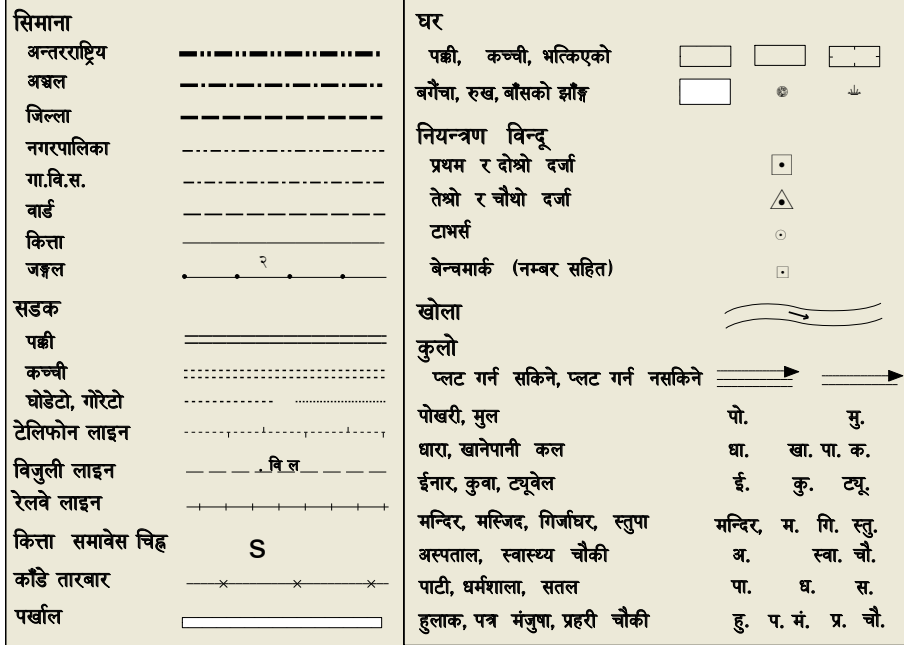 सिमाना
अन्तरराष्ट्रिय
अञ्चल
जिल्ला
नगरपालिका
गा.वि.स.
वार्ड
कित्ता
जङ्गल २
सडक
पक्की
कच्ची
घोडेटो, गोरेटो
टेलिफोन लाइन
विजुली लाइन . वि ल
रेलवे लाइन
कित्ता समावेस चिह्न S
काँडे तारबार
पर्खाल
घर
पक्की, कच्ची, भत्किएको
बगैंचा, रुख, बाँसको झाँङ्ग
नियन्त्रण विन्दू
प्रथम र दोश्रो दर्जा
तेश्रो र चौथो दर्जा
टाभर्स
बेन्चमार्क (नम्बर सहित)
खोला
कुलो
प्लट गर्न सकिने, प्लट गर्न नसकिने
पोखरी, मुल पो. मु.
धारा, खानेपानी कल धा. खा. पा. क.
ईनार, कुवा, ट्यूवेल ई. कु. ट्यू.
मन्दिर, मस्जिद, गिर्जाघर, स्तुपा मन्दिर, म. गि. स्तु.
अस्पताल, स्वास्थ्य चौकी अ. स्वा. चौ.
पाटी, धर्मशाला, सतल पा. ध. स.
हुलाक, पत्र मंजुषा, प्रहरी चौकी हु. प. मं. प्र. चौ.